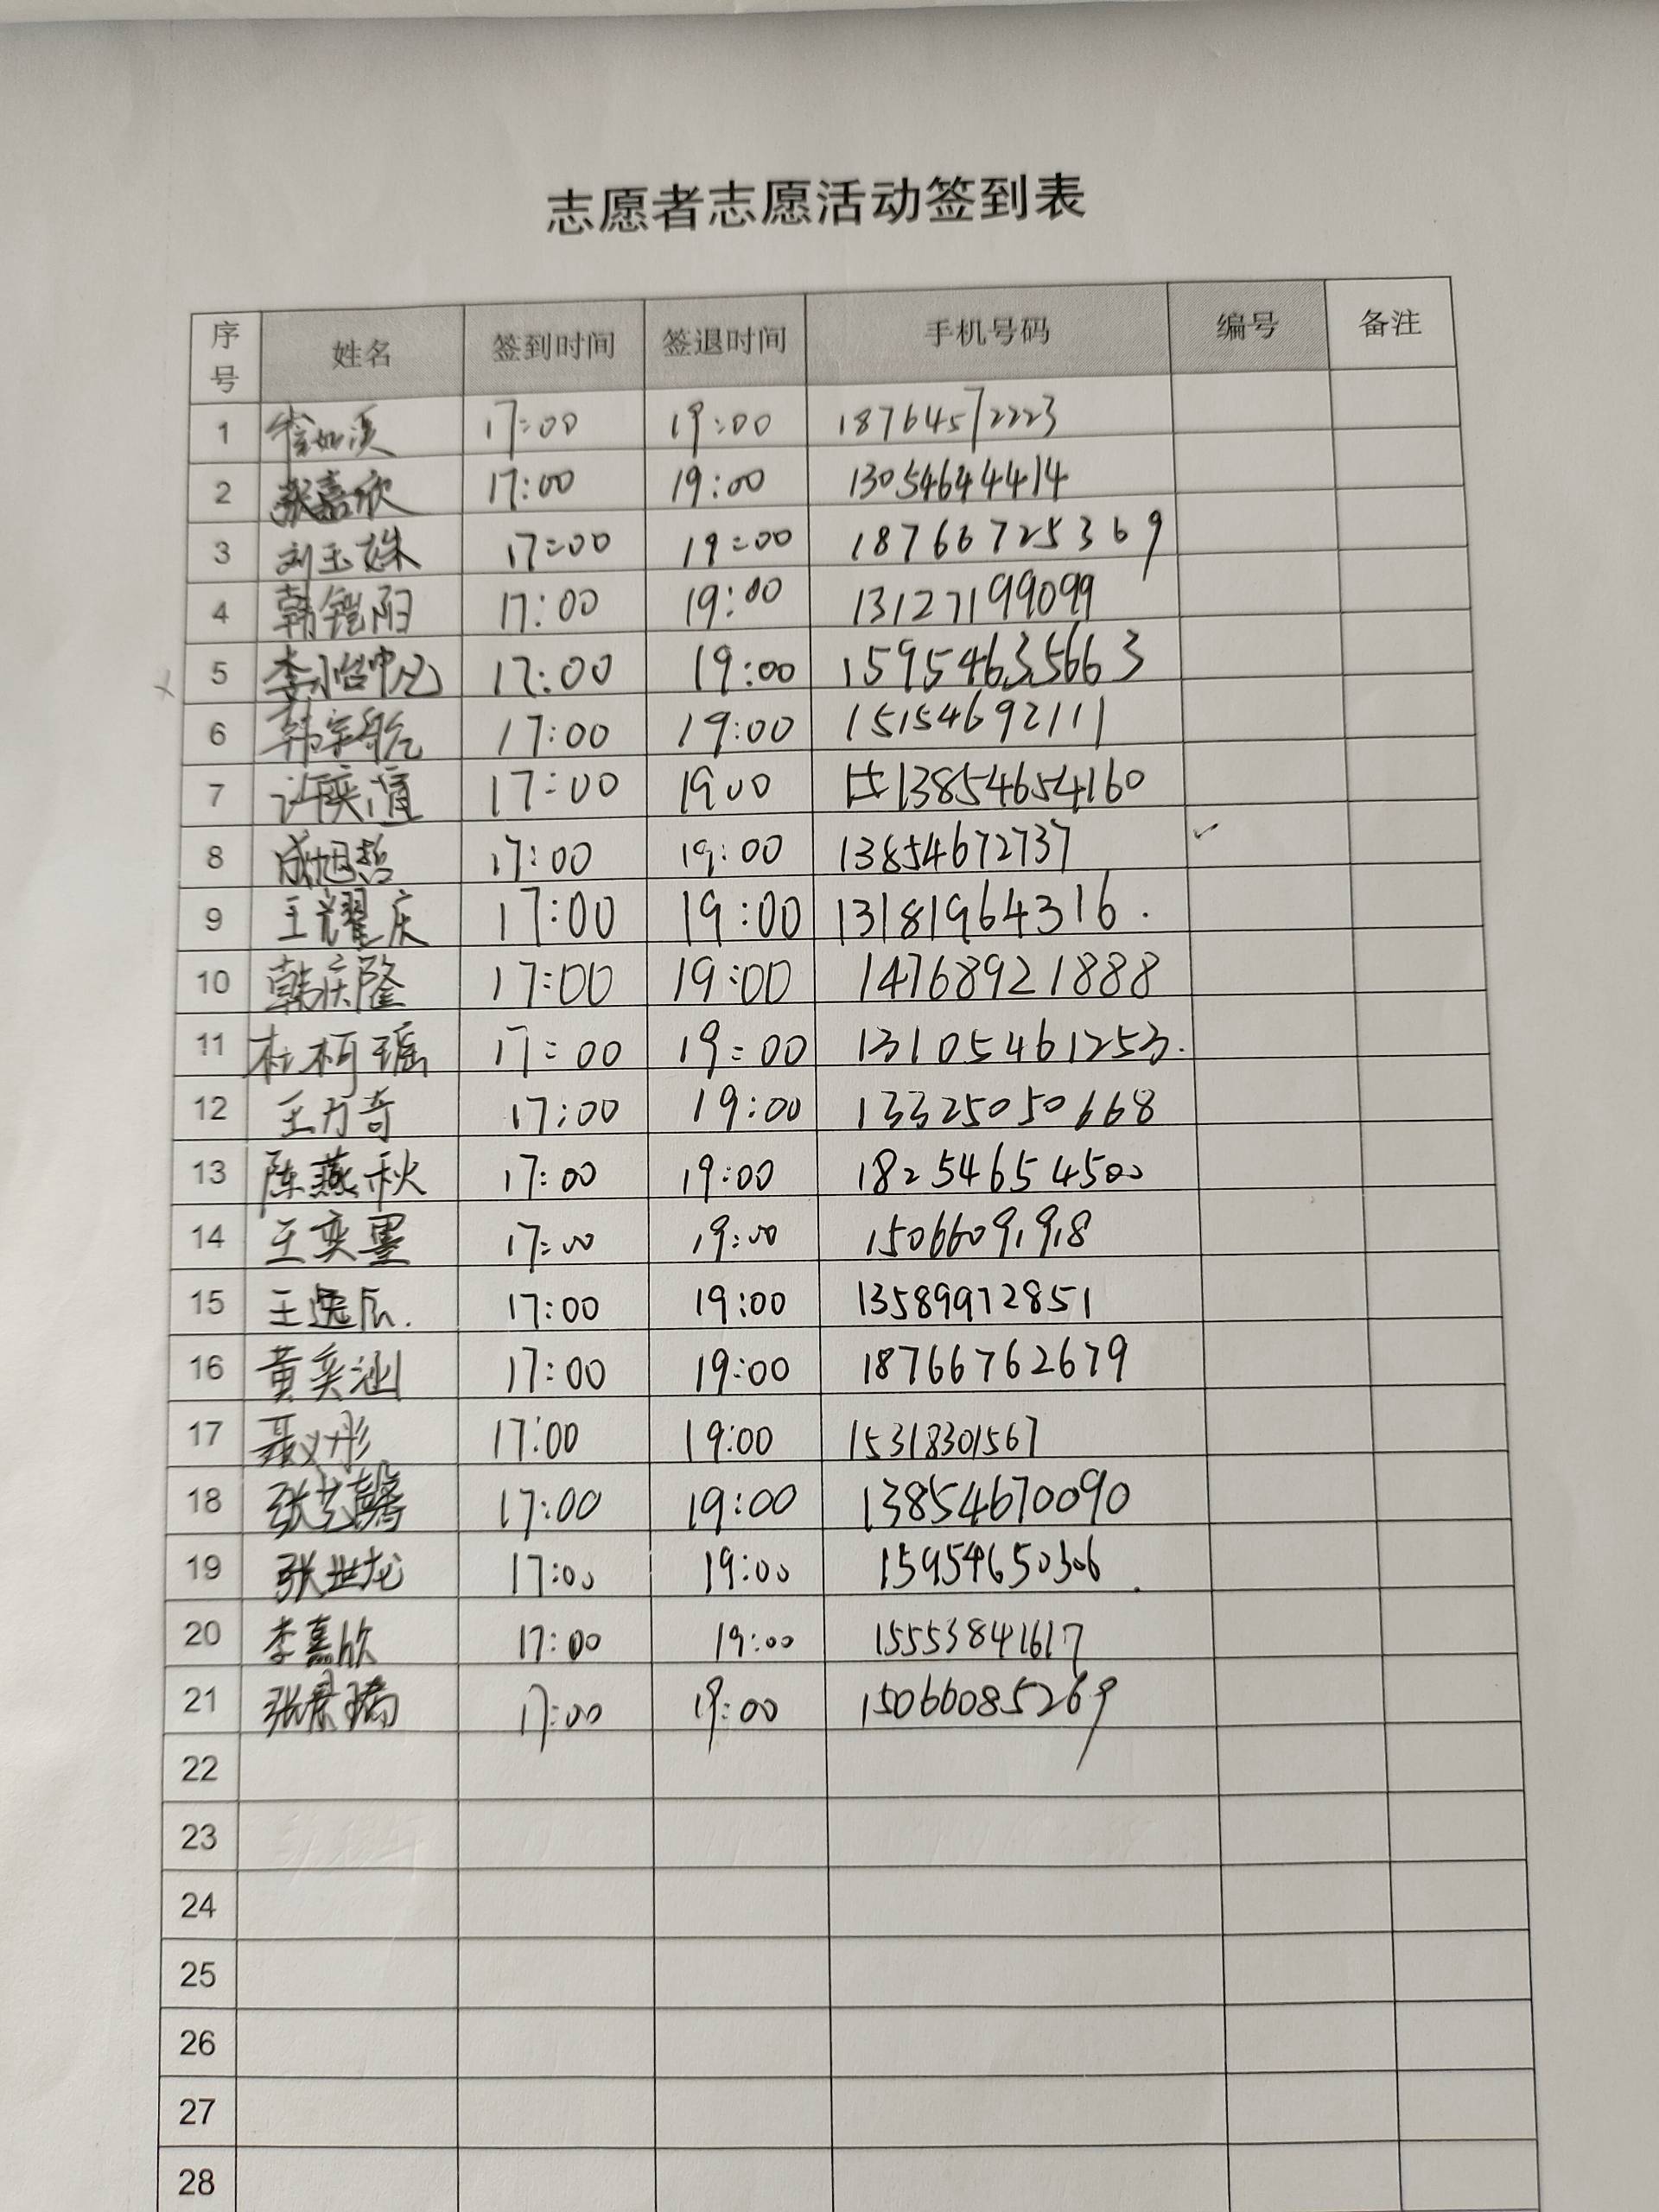 志愿者志愿活动签到表
序号 姓名 签到时间 签退时间 手机号码 编号 备注
1 17:00 19:00 18764572223
2 张嘉欣 17:00 19:00 13054644414
3 刘玉姝 17:00 19:00 18766725369
4 韩铠阳 17:00 19:00 13127199099
5 17:00 19:00 15954635663
6 韩宗航 17:00 19:00 15154692111
7 17:00 1900 13854654160
8 成旭哲 17:00 19:00 13854672737 ✓
9 王耀庆 17:00 19:00 13181964316.
10 韩庆隆 17:00 19:00 14768921888
11 杜柯瑶 17:00 19:00 13105461253.
12 王万奇 17:00 19:00 13325050668
13 陈燕秋 17:00 19:00 18254654500
14 王奕墨 17:00 19:00 15066091918
15 王逸辰. 17:00 19:00 13589972851
16 黄奕汕 17:00 19:00 18766762679
17 聂义彤 17:00 19:00 15318301567
18 张艺馨 17:00 19:00 13854670090
19 张世龙 17:00 19:00 15954650306
20 李嘉欣 17:00 19:00 15553841617
21 张景瑞 17:00 19:00 15066085269
22
23
24
25
26
27
28